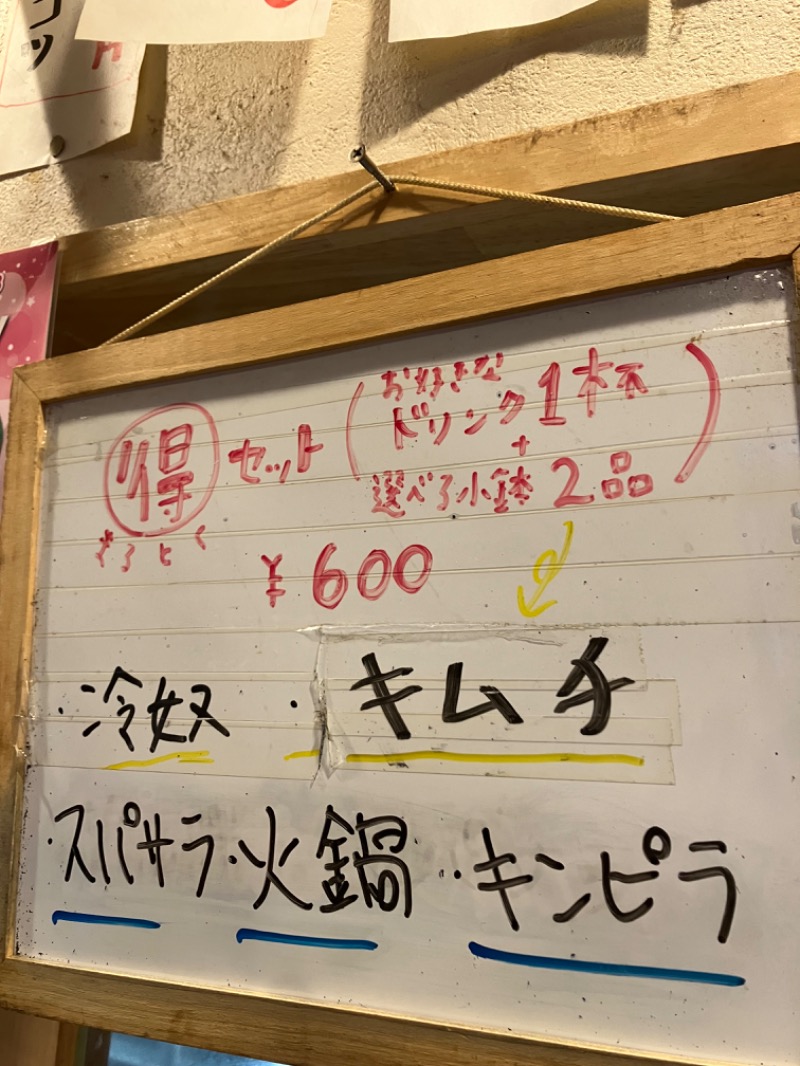 コツ
円
得 セット (お好きな
ドリンク1杯
+
選べる小鉢2品)
とく
¥600
・冷奴 ・キムチ
・スパサラ・火鍋・キンピラ